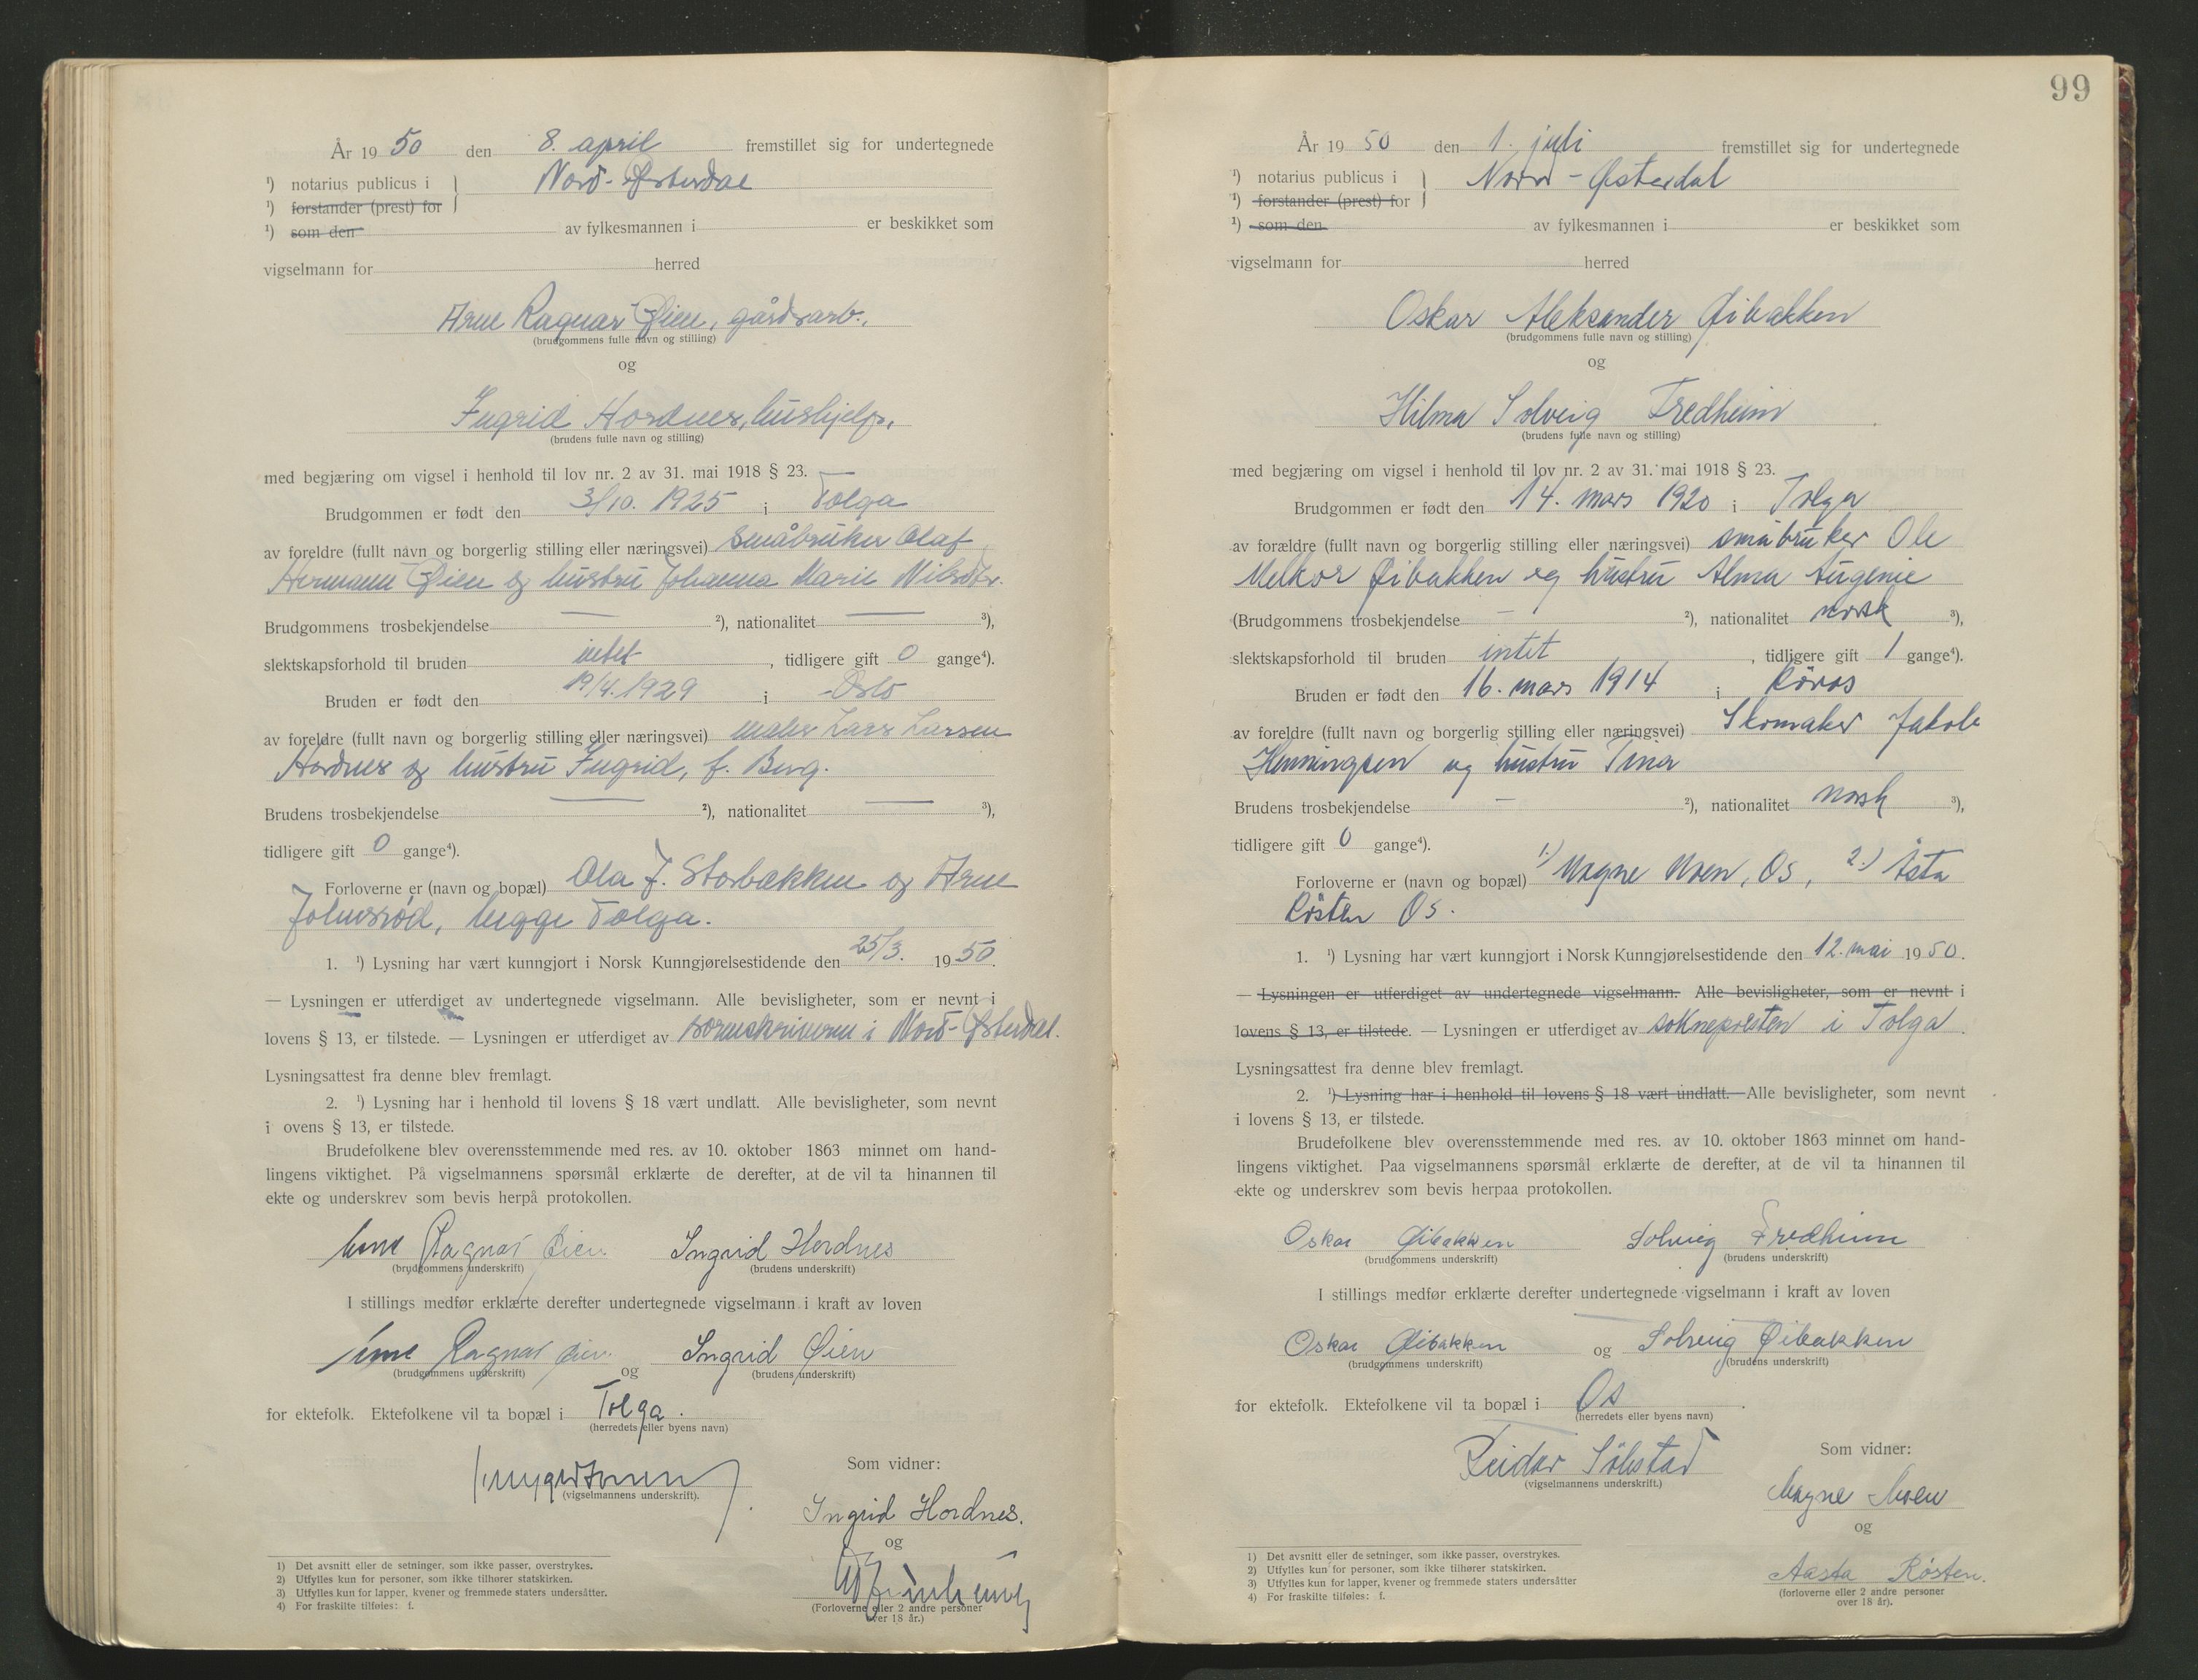 År 1950 den 8. april fremstillet sig for undertegnede
¹) notarius publicus i } Nord-Østerdal
¹) forstander (prest) for
¹) som den av fylkesmannen i er beskikket som
vigselmann for herred
Arne Ragnar Øien, gårdsarb.,
(brudgommens fulle navn og stilling)
og
Ingrid Hordnes, hushjelp,
(brudens fulle navn og stilling)
med begjæring om vigsel i henhold til lov nr. 2 av 31. mai 1918 § 23.
Brudgommen er født den 3/10. 1925 i Tolga
av foreldre (fullt navn og borgerlig stilling eller næringsvei) småbruker Olaf
Hermann Øien og hustru Johanna Marie Nilsdtr.
Brudgommens trosbekjendelse — ²), nationalitet — ³),
slektskapsforhold til bruden intet, tidligere gift 0 gange⁴).
Bruden er født den 19/4. 1929 i Oslo
av foreldre (fullt navn og borgerlig stilling eller næringsvei) maler Lars Larsen
Hordnes og hustru Ingrid, f. Berg.
Brudens trosbekjendelse — ²), nationalitet — ³),
tidligere gift 0 gange⁴).
Forloverne er (navn og bopæl) Ola J. Storbekken og Arne
Johnsrød, begge Tolga.
1. ¹) Lysning har vært kunngjort i Norsk Kunngjørelsestidende den 25/3. 1950.
— Lysningen er utferdiget av undertegnede vigselmann. Alle bevisligheter, som er nevnt i
lovens § 13, er tilstede. — Lysningen er utferdiget av sorenskriveren i Nord-Østerdal.
Lysningsattest fra denne blev fremlagt.
2. ¹) Lysning har i henhold til lovens § 18 vært undlatt. Alle bevisligheter, som nevnt
i ovens § 13, er tilstede.
Brudefolkene blev overensstemmende med res. av 10. oktober 1863 minnet om hand-
lingens viktighet. På vigselmannens spørsmål erklærte de derefter, at de vil ta hinannen til
ekte og underskrev som bevis herpå protokollen.
Arne Ragnar Øien Ingrid Hordnes
(brudgommens underskrift) (brudens underskrift)
I stillings medfør erklærte derefter undertegnede vigselmann i kraft av loven
Arne Ragnar Øien og Ingrid Øien
(brudgommens underskrift) (brudens underskrift)
for ektefolk. Ektefolkene vil ta bopæl i Tolga.
(herredets eller byens navn)
(vigselmannens underskrift).
Som vidner:
Ingrid Hordnes.
og
(Forloverne eller 2 andre personer
over 18 år.)
1) Det avsnitt eller de setninger, som ikke passer, overstrykes.
2) Utfylles kun for personer, som ikke tilhører statskirken.
3) Utfylles kun for lapper, kvener og fremmede staters undersåtter.
4) For fraskilte tilføies: f.
99
År 1950 den 1. juli fremstillet sig for undertegnede
¹) notarius publicus i } Nord-Østerdal
¹) forstander (prest) for
¹) som den av fylkesmannen i er beskikket som
vigselmann for herred
Oskar Aleksander Øibakken
(brudgommens fulle navn og stilling)
og
Hilma Solveig Fredheim
(brudens fulle navn og stilling)
med begjæring om vigsel i henhold til lov nr. 2 av 31. mai 1918 § 23.
Brudgommen er født den 14. mars 1920 i Tolga
av forældre (fullt navn og borgerlig stilling eller næringsvei) småbruker Ole
Melkor Øibakken og hustru Alma Augenie
(Brudgommens trosbekjendelse — ²), nationalitet norsk ³),
slektskapsforhold til bruden intet, tidligere gift 1 gange⁴).
Bruden er født den 16. mars 1914 i Røros
av foreldre (fullt navn og borgerlig stilling eller næringsvei) Skomaker Jakob
Henningsen og hustru Tina
Brudens trosbekjendelse — ²), nationalitet norsk ³),
tidligere gift 0 gange⁴).
Forloverne er (navn og bopæl) 1.) Magne Moen, Os, 2.) Åsta
Røsten Os.
1. ¹) Lysning har vært kunngjort i Norsk Kunngjørelsestidende den 12. mai 1950.
— Lysningen er utferdiget av undertegnede vigselmann. Alle bevisligheter, som er nevnt i
lovens § 13, er tilstede. — Lysningen er utferdiget av soknepresten i Tolga.
Lysningsattest fra denne blev fremlagt.
2. ¹) Lysning har i henhold til lovens § 18 vært undlatt. Alle bevisligheter, som nevnt
i lovens § 13, er tilstede.
Brudefolkene blev overensstemmende med res. av 10. oktober 1863 minnet om hand-
lingens viktighet. Paa vigselmannens spørsmål erklærte de derefter, at de vil ta hinannen til
ekte og underskrev som bevis herpaa protokollen.
Oskar Øibakken Solveig Fredheim
(brudgommens underskrift) (brudens underskrift)
I stillings medfør erklærte derefter undertegnede vigselmann i kraft av loven
Oskar Øibakken og Solveig Øibakken
(brudgommens underskrift) (brudens underskrift)
for ektefolk. Ektefolkene vil ta bopæl i Os
(herredets eller byens navn)
Reidar Sølvstad
(vigselmannens underskrift.)
Som vidner:
Magne Moen
og
Aasta Røsten.
(forloverne eller 2 andre personer
over 18 år).
1) Det avsnitt eller de setninger, som ikke passer, overstrykes.
2) Utfylles kun for personer, som ikke tilhører statskirken.
3) Utfylles kun for lapper, kvener og fremmede staters undersåtter
4) For fraskilte tilføies: f.